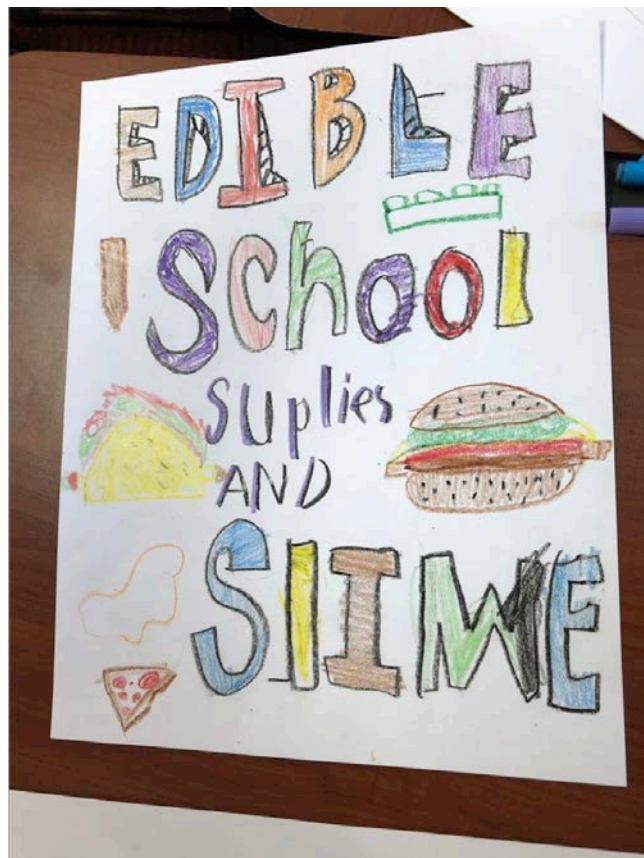 EDIBLE
SChool
Suplies
AND
SlIME